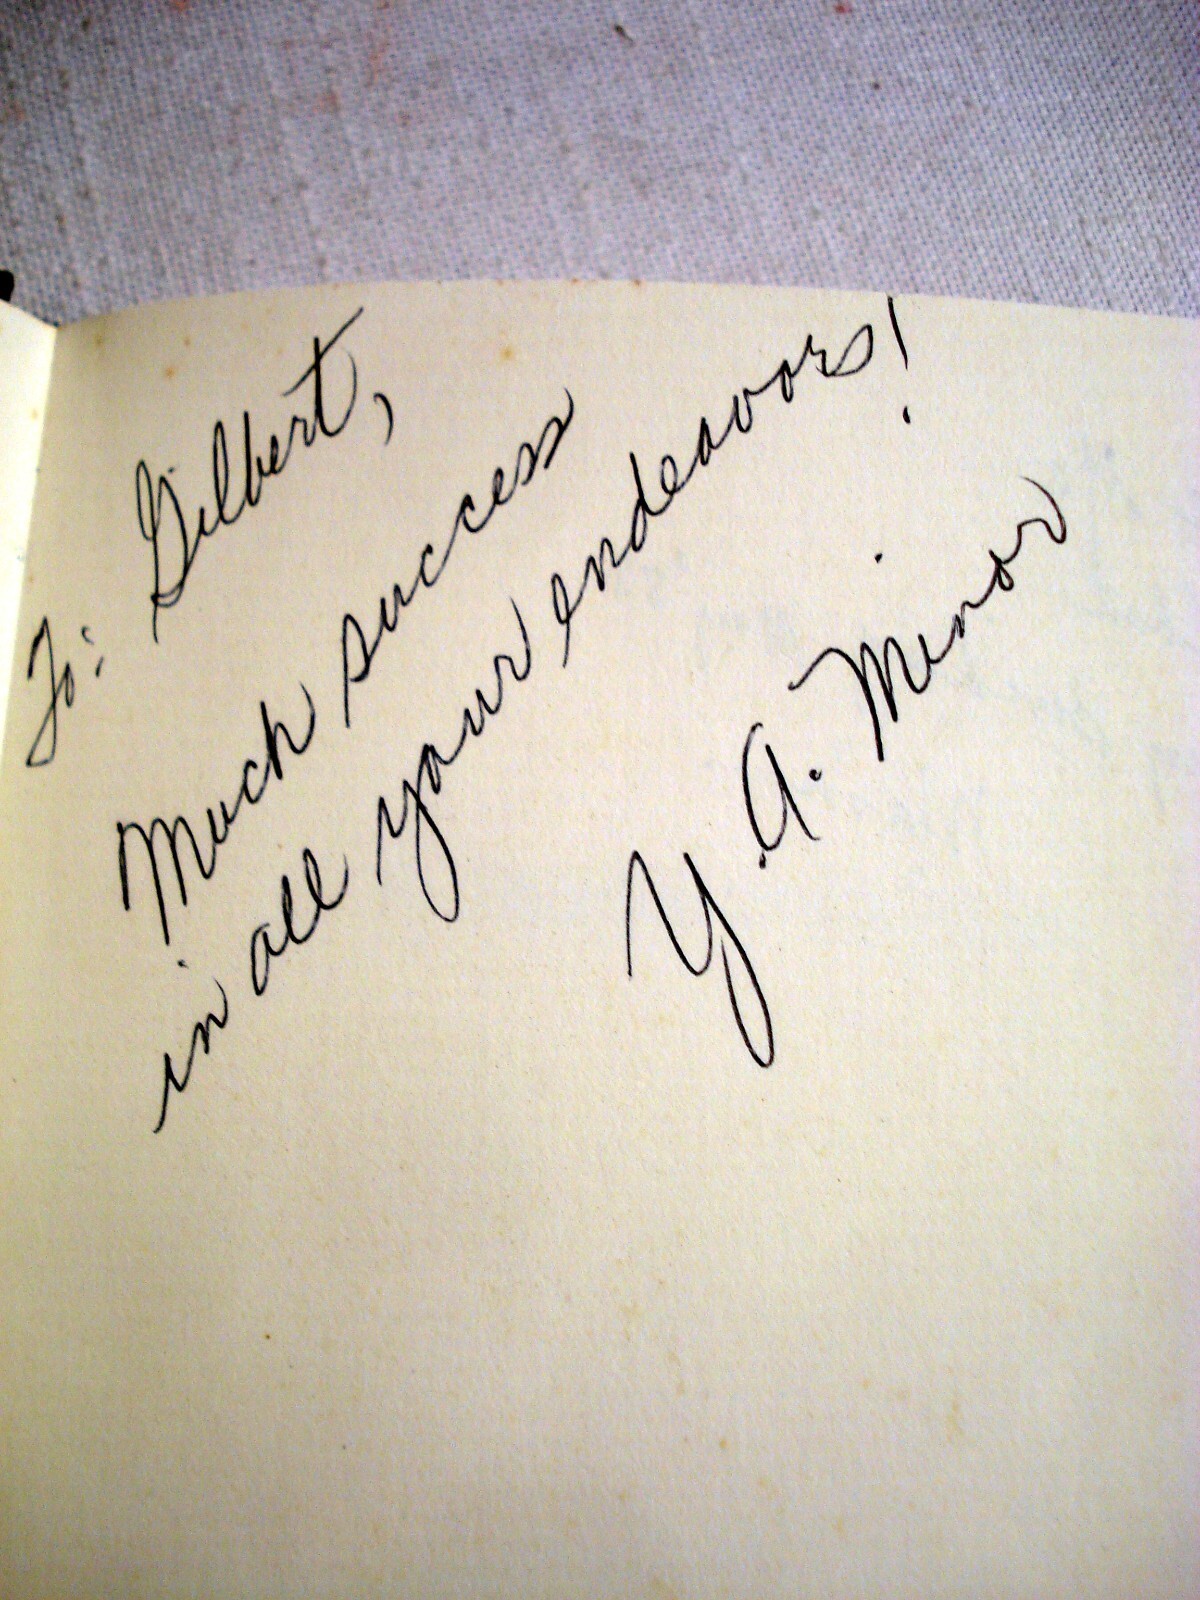 To: Gilbert,
Much success
in all your endeavors!
Y. A. Minor